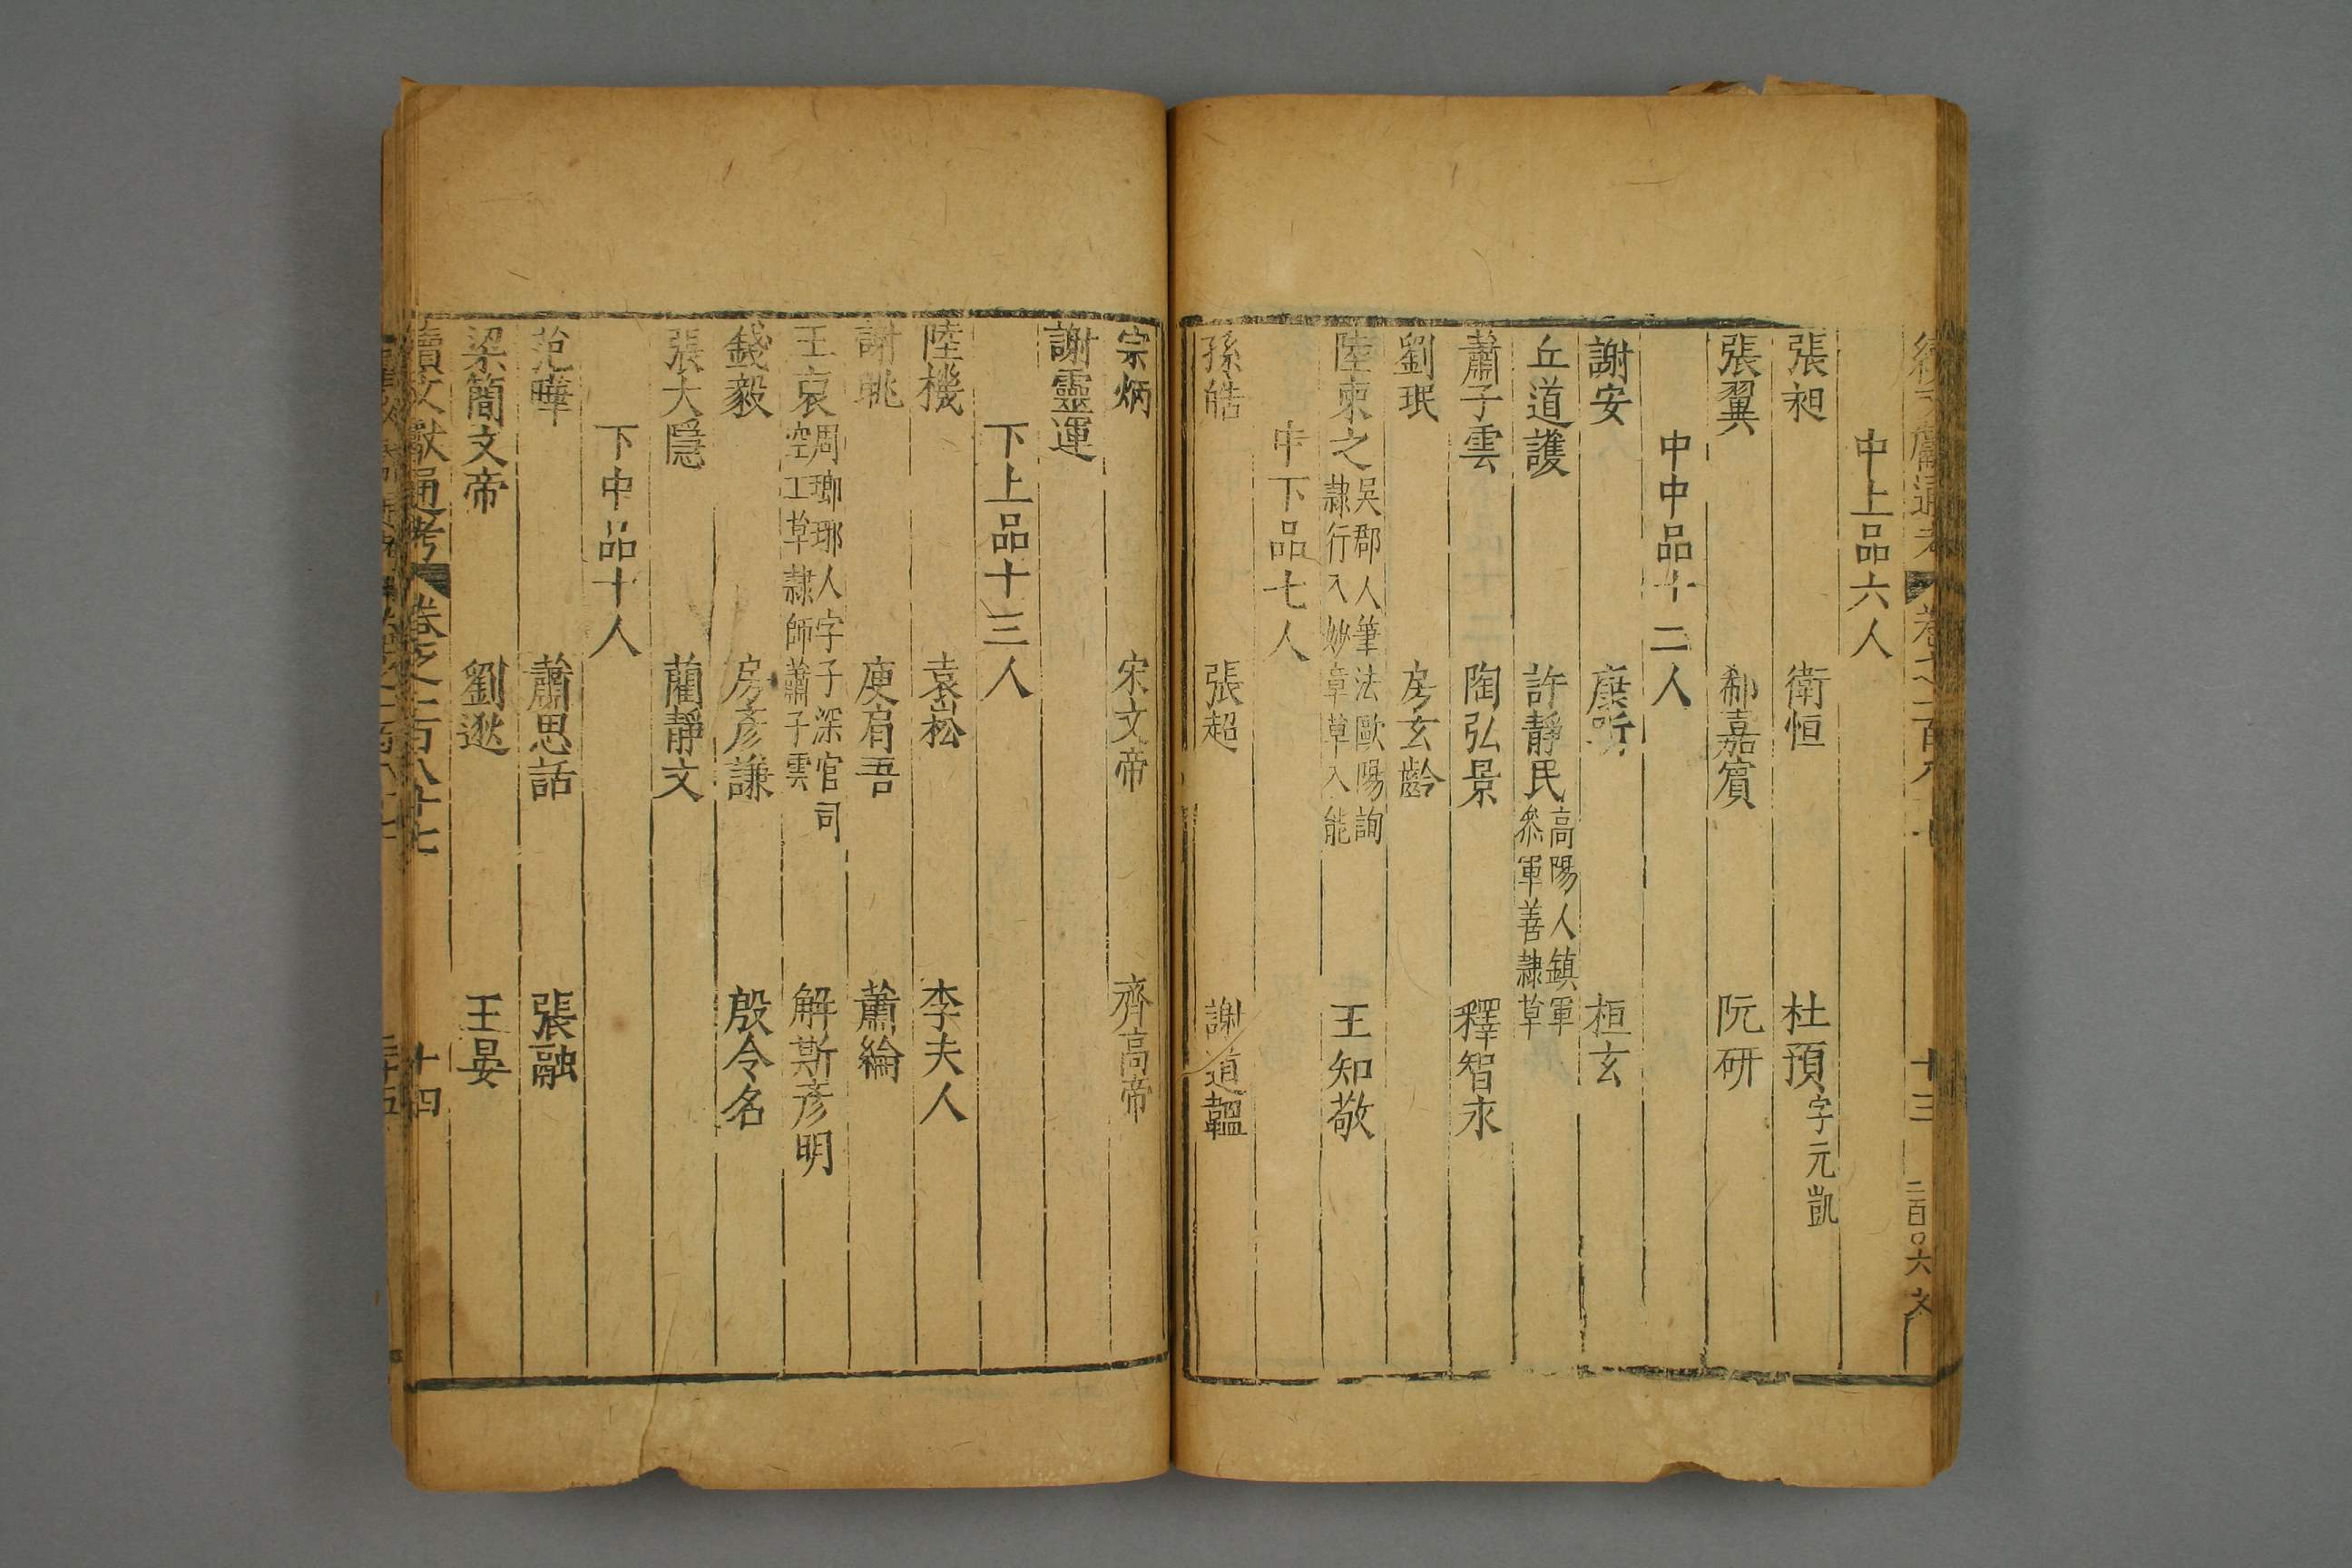 續文獻通考 卷之一百八十七 十三 二百〇六 文
中上品六人
張昶 衛恒 杜預字元凱
張翼 郗嘉賓 阮研
中中品十二人
謝安 庾昕 桓玄
丘道護 許靜民高陽人鎮軍參軍善隸草
蕭子雲 陶弘景 釋智永
劉珉 房玄齡
陸柬之吳郡人筆法歐陽詢隸行入妙章草草入能 王知敬
中下品七人
孫皓 張超 謝道韞
宗炳 宋文帝 齊高帝
謝靈運
下上品十三人
陸機 袁崧 李夫人
謝朓 庾肩吾 蕭綸
王哀周瑯琊人字子深官司空工草隸師蕭子雲 解斯彥明
錢毅 房彥謙 殷令名
張大隱 藺靜文
下中品十人
范曄 蕭思話 張融
梁簡文帝 劉逖 王晏
續文獻通考 卷之一百八十七 十四